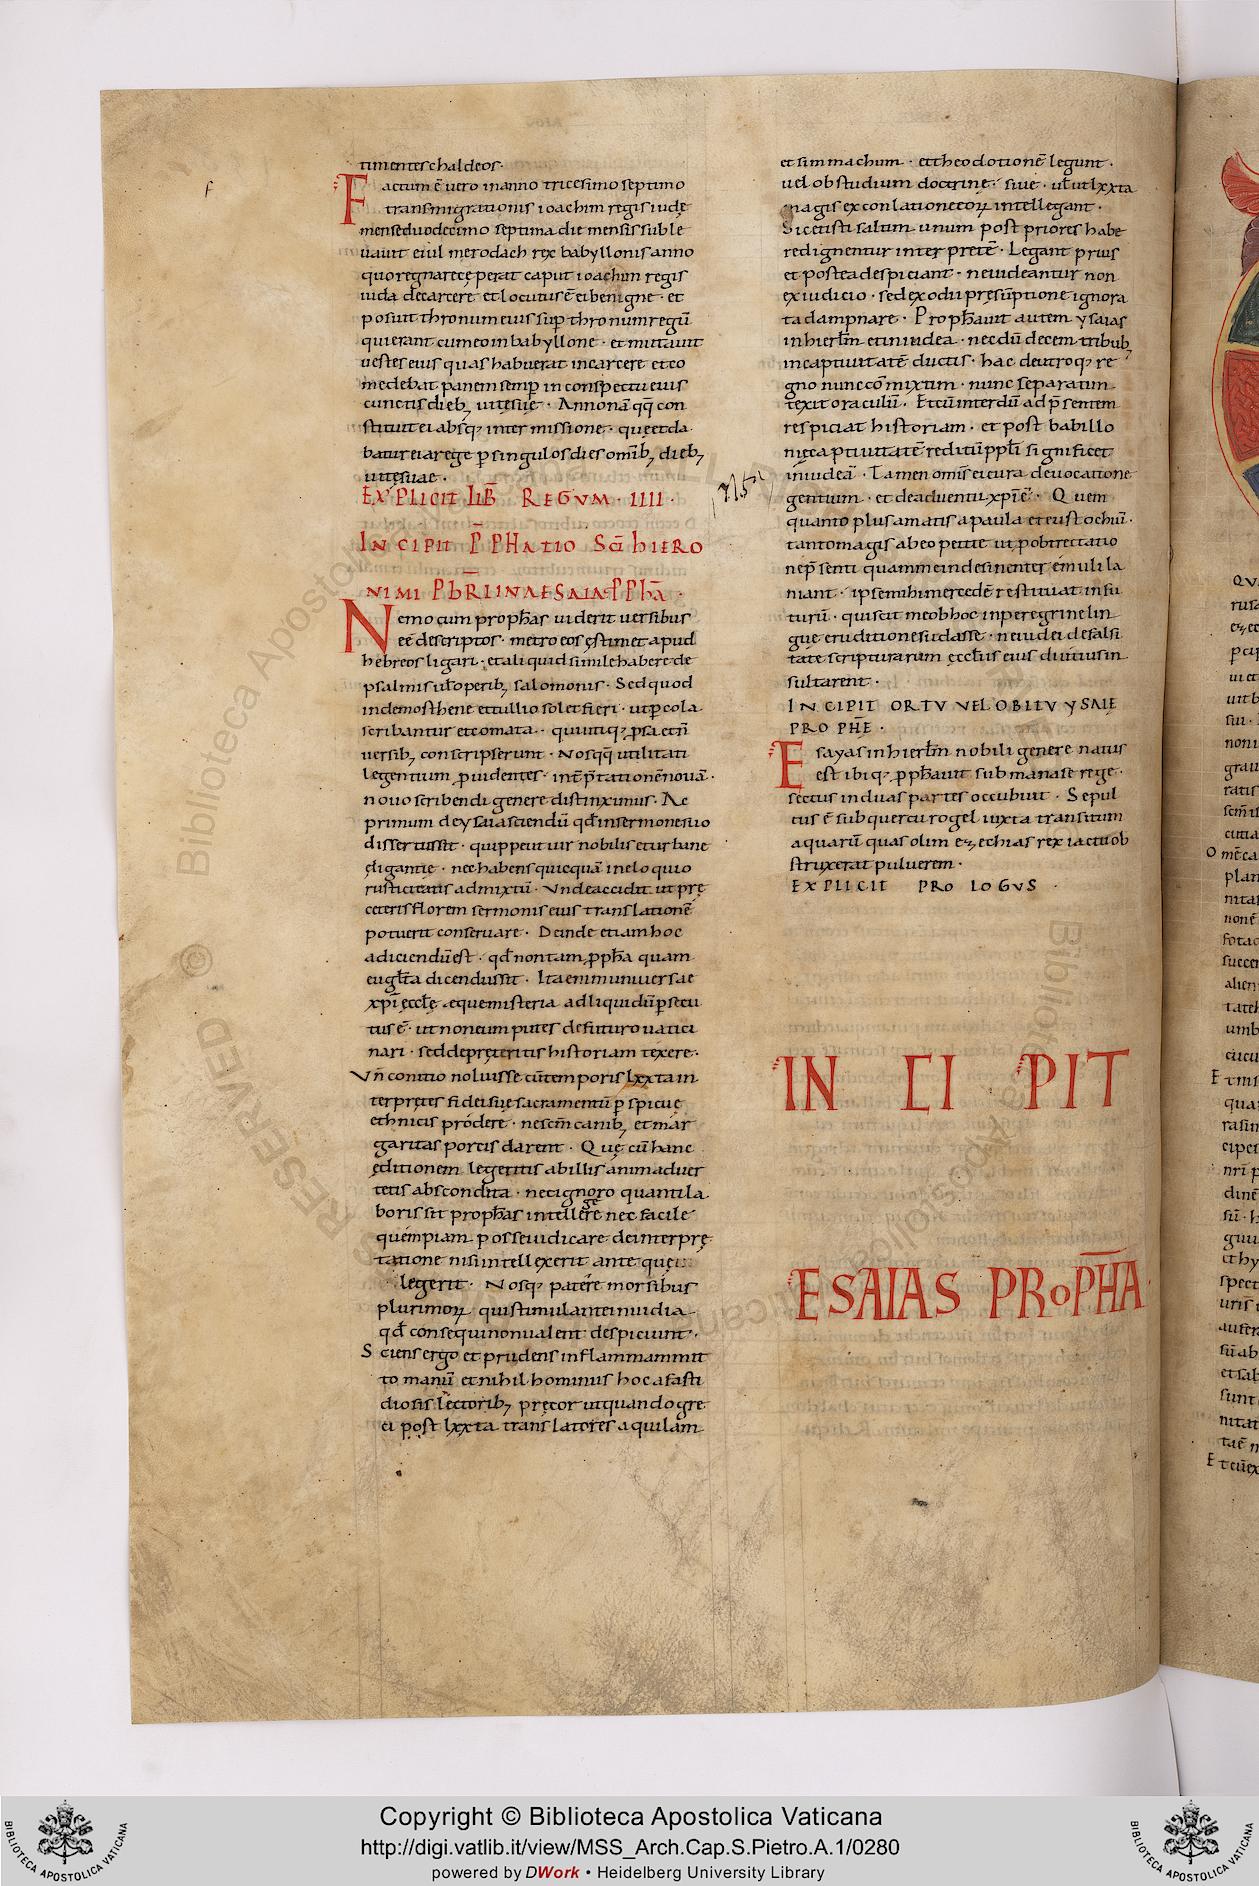 timentes chaldeos·
Factum ē vero in anno tricesimo septimo
transmigrationis ioachim regis iudę
mense duodecimo septima die mensis suble
uauit euil merodach rex babyllonis anno
quo regnare cęperat caput ioachim regis
iuda de carcere et locutus ē ei benigne · et
posuit thronum eius sup̄ thronum regū
qui erant cum eo in babyllone · et mutauit
uestes eius quas habuerat in carcere et co
medebat panem semp̄ in conspectu eius
cunctis dieb; uitę suę · Annonā qq̄ con
stituit ei absq; intermissione · quę et da
batur ei a rege p singulos dies omīb; dieb;
uitę suae ·
EXPLICIT LIB̄ REGUM · IIII ·
INCIPIT P̄PHATIO SC̄I HIERO
NIMI PBR̄I IN AESAIA P̄PHĀ ·
Nemo cum prophas uiderit uersibus
eē descriptos · metro eos ęstimet apud
hebreos ligari · et aliquid simile habere de
psalmis ul operib; salomonis · Sed quod
in demosthene et tullio solet fieri · ut p cola
scribantur et comata · qui utiq; psa et n̄
uersib; conscripserunt · Nos qq̄ utilitati
legentium puidentes · int̄p̄tationē nouā ·
nouo scribendi genere distinximus · Ac
primum de ysaia sciendū qd̄ in sermone suo
dissertus sit · quippe ut uir nobilis et urbane
eligantię · nec habens quicquā in eloquio
rusticitatis admixtū · Unde accidit ut prę
ceteris florem sermonis eius translationē
potuerit conseruare · Deinde etiam hoc
adiciendū est · qd̄ non tam ppha quam
eugl̄ta dicendus sit · Ita enim uniuersae
xpī ęccłę ęque misteria ad liquidū psecu
tus ē · ut non eum putes de futuro uatici
nari · sed de pręteritis historiam texere ·
Un̄ conitio noluisse cū temporis lxxta in
terpretes fidei suę sacramentū pspicuę
ethnicis pródere · ne sc̄m canib; et mar
garitas porcis darent · Quę cū hanc
editionem legeritis ab illis animaduer
tetis abscondita · nec ignoro quanti la
boris sit prophas intellegere nec facile
quempiam posse iudicare de interprę
tatione nisi intellexerit ante quę
legerit · Nosq; patére morsibus
plurimoꝝ qui stimulante inuidia
qd̄ consequi non ualent despiciunt ·
Sciens ergo et prudens in flammam mit
to manū et nihil hominus hoc a fasti
diosis lectorib; precor ut quando gre
ci post lxxta translatores aquilam
et simmachum · et theodotionē legunt ·
uel ob studium doctrinę suę · ul ut lxxta
magis ex conlatione eoꝝ intellegant ·
Sic et isti saltum unum post priores habe
re dignentur interpretē · Legant prius
et postea despiciant · ne uideantur non
ex iudicio · sed ex odii presūptione ignora
ta dampnare · Prophauit autem ysaias
in hierlm̄ et in iudea · nec dū decem tribub;
in captiuitatē ductis · hac de utroq; re
gno nunc cōmixtim · nunc separatim
texit oraculū · Et cū interdū ad p̄sentem
respiciat historiam · et post babillo
nię captiuitatē reditū ppli significet
in iudeā · Tamen omīs ei cura de uocatione
gentium · et de aduentu xpī ē · Quem
quanto plus amatis a paula et eustochiū ·
tanto magis ab eo petite ut p obtrectatio
ne p̄senti qua me indesinenter emuli la
niant · ipse mihi mercedē restituat in fu
turū · qui scit me ob hoc in peregrinę lin
guę eruditione sudasse · ne iudei de falsi
tate scripturarum ęccłiis eius diutius in
sultarent ·
INCIPIT ORTU VEL OBITU YSAIE
PROPHĒ ·
Esayas in hierlm̄ nobili genere natus
est ibiq; pphauit sub manase rege ·
sectus in duas partes occubuit · Sepul
tus ē sub quercu rogel iuxta transitum
aquarū quas olim ezechias rex iactu ob
struxerat puluerem ·
EXPLICIT PROLOGUS ·
INCIPIT
ESAIAS PROPHA ·
Copyright © Biblioteca Apostolica Vaticana
http://digi.vatlib.it/view/MSS_Arch.Cap.S.Pietro.A.1/0280
powered by DWork • Heidelberg University Library